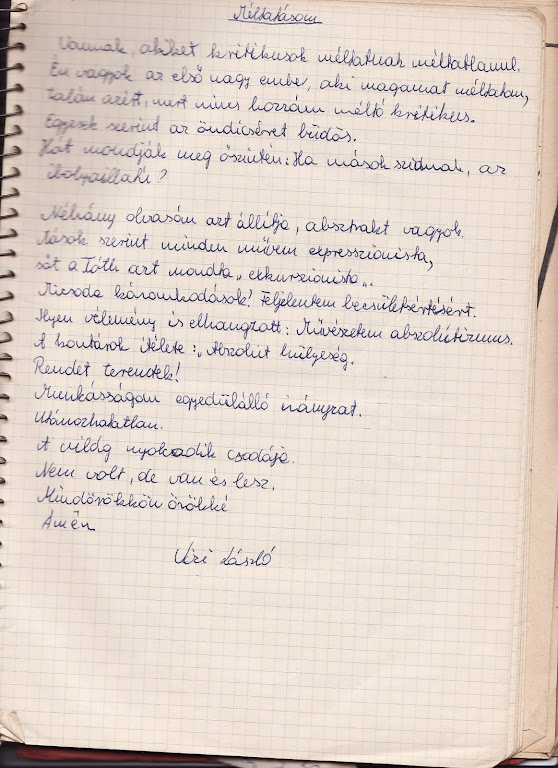 Méltatásom
Vannak, akiket kritikusok méltatnak méltatlanul.
Én vagyok az első nagy ember, aki magamat méltatom,
talán azért, mert nincs hozzám méltó kritikus.
Egyesek szerint az öndicséret büdös.
Hát mondják meg őszintén: Ha mások szidnak, az
ibolyaillatú?
Néhány olvasóm azt állítja, absztrakt vagyok.
Mások szerint minden művem expresszionista,
sőt a Tóth azt mondta „exkurzionista„.
Micsoda káromkodások! Feljelentem becsületsértésért.
Ilyen vélemény is elhangzott: Művészetem abszolutizmus.
A kontárok ítélete: „Abszolút hülyeség.
Rendet teremtek!
Munkásságom egyedülálló irányzat.
Utánozhatatlan.
A világ nyolcadik csodája.
Nem volt, de van és lesz.
Mindörökkön örökké
Ámen
Vizi László